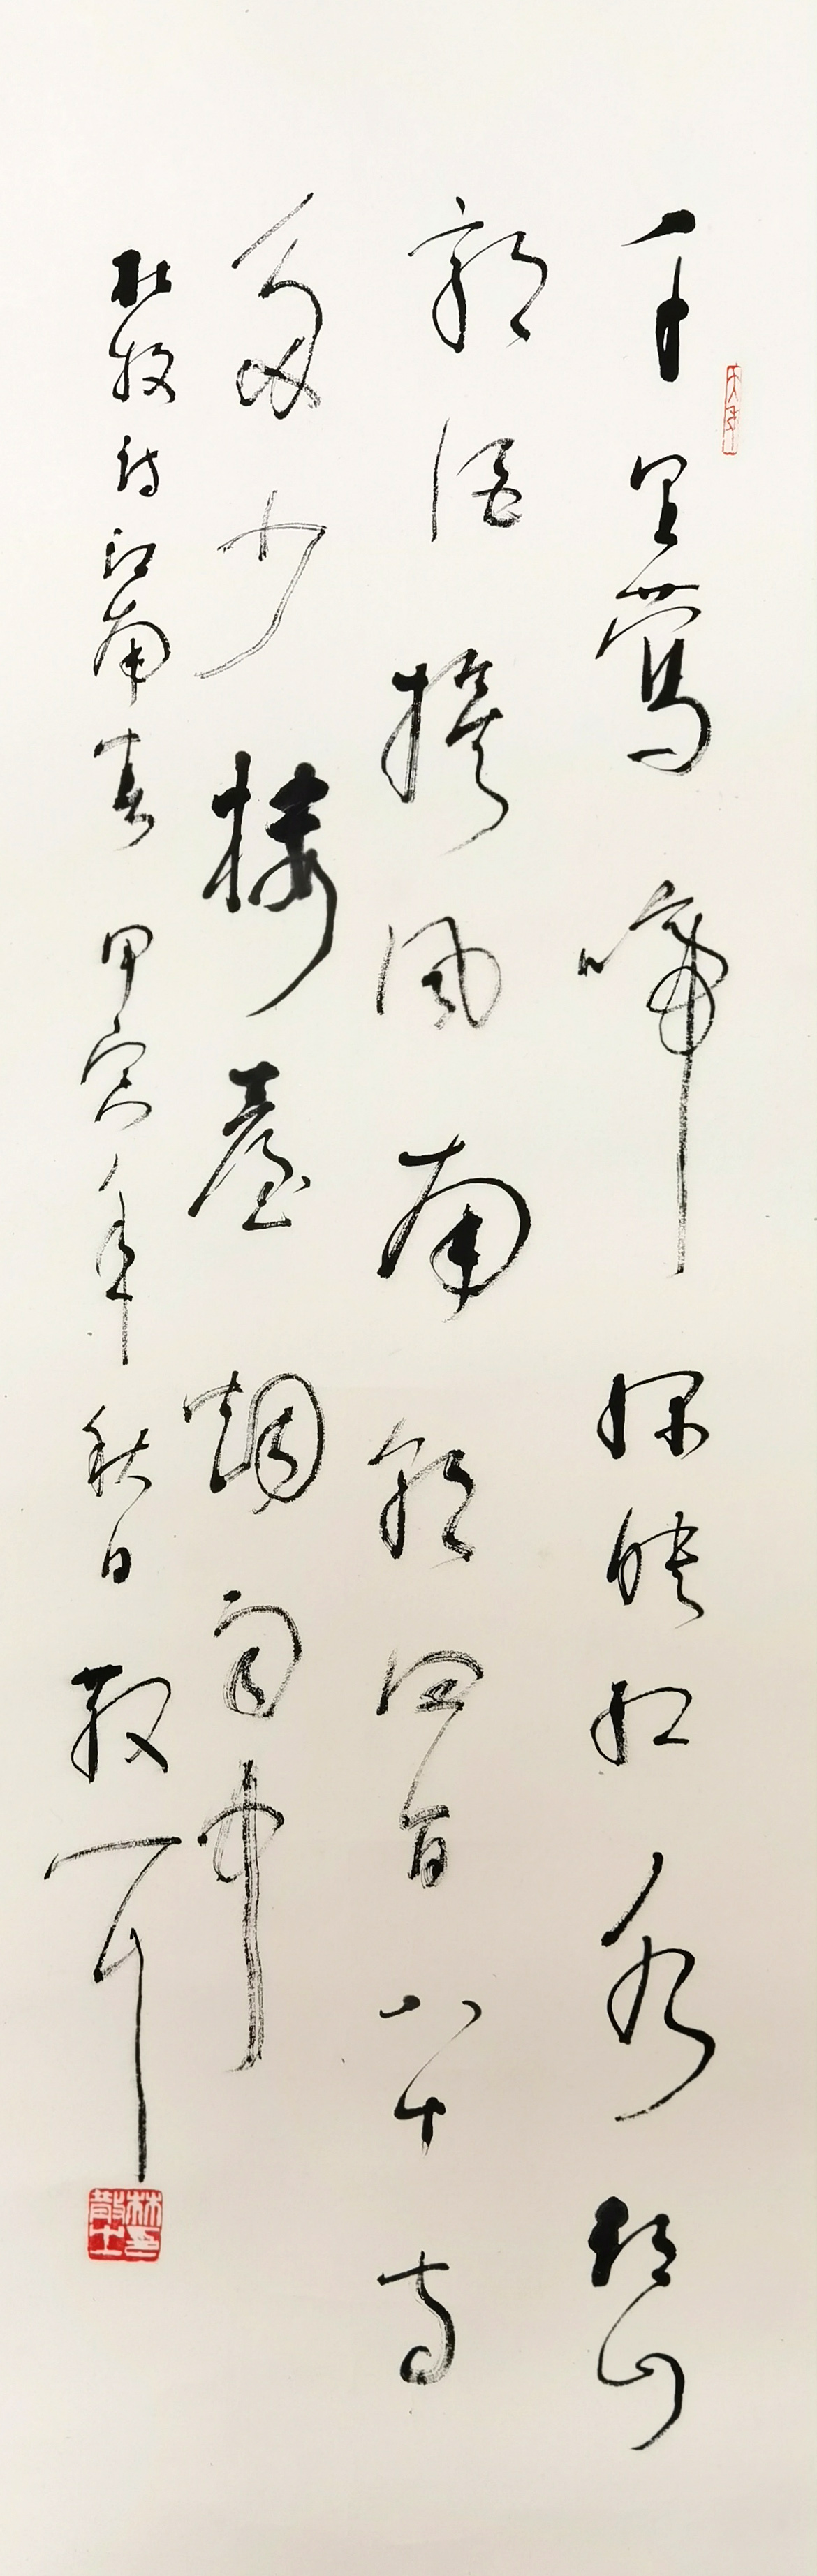 千里鶯啼綠映紅水邨山
郭酒旗風南朝四百八十寺
多少樓臺烟雨中
杜牧詩江南春 甲寅年秋日 散耳
林印散之